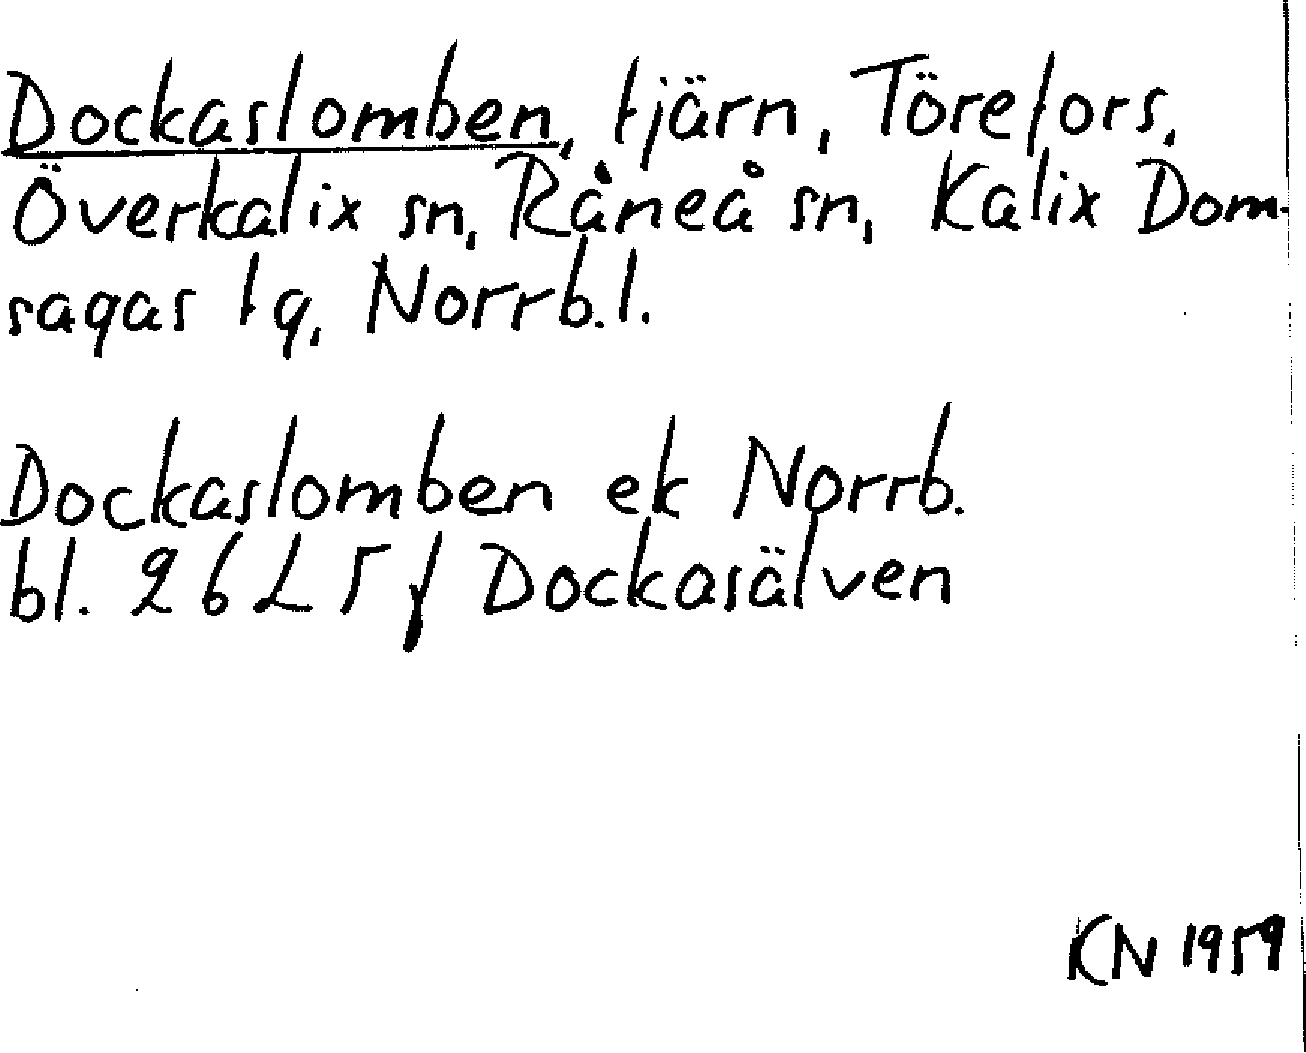 Dockaslomben, tjärn, Törefors,
Överkalix sn, Råneå sn, Kalix Dom-
sagas tg, Norrb.l.
Dockaslomben ek Norrb.
bl. 26 L 5 f Dockasälven
KN 1959